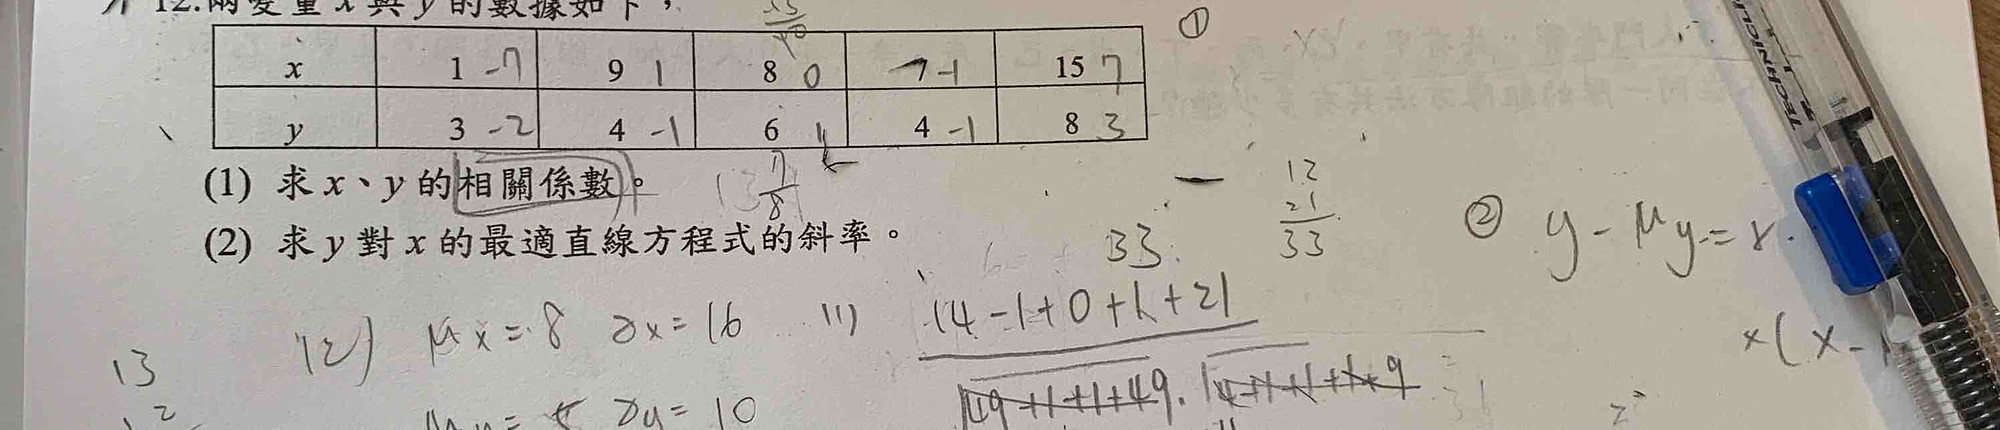 12.兩變量 x 與 y 的數據如下，
x 1 -7 9 1 8 0 7 -1 15 7
y 3 -2 4 -1 6 1 4 -1 8 3
(1) 求 x、y 的相關係數。
(2) 求 y 對 x 的最適直線方程式的斜率。
①
13 7/8
33
12
21
33
② y - μy = r.
x(x-
12) μx = 8 σx = 16
11) 14-1+0+1+21
√49+1+1+49 . √4+1+1+1+9
13
σy = 10
TECHNICLI